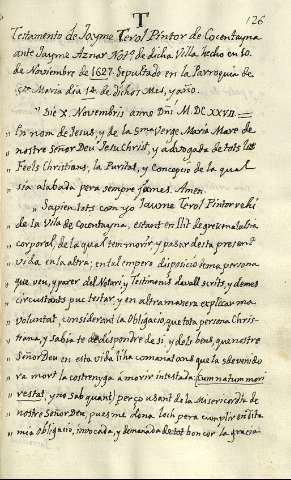 T
126
Testamento de Jayme Terol Pintor de Cocentayna
ante Jayme Aznar Not.º de dicha Villa hecho en 10.
de Noviembre de 1627. Sepultado en la Parroquia de
S.ta Maria dia 14 de dichos Mes, y año.
Die X Novembris anno Dñi M.DC.XXVII.
En nom de Jesus, y de la Sma Verge Maria Mare de
nostre Señor Deu Jesu Christ, y advogada de tots los
Feels Christians, la Puritat, y Concepcio de la qual
sia alabada pera sempre james. Amen.
Sapien tots com yo Jayme Terol Pintor rehi
de la Vila de Cocentayna, estant en llit de greu malaltia
corporal, de la qual tem morir, y pasar desta present
vida en la altra; en tal empero disposicio de ma persona
que veu, y parer del Notari y Testimonis davall scrits, y demes
circustants puc testar, y en altra manera explicar ma
voluntat, considerant la Obligacio que tota persona Chris-
tiana, y sabia te de dispondre de si, y dels bens que nostre
Señor Deu en esta vida li ha comanat ans que la sdevenido
ra mort la costrenyga à morir intestada: cum natum mori
restat, y no sab quant) per ço usant de la Misericordia de
nostre Señor Deu, pues me dona loch pera cumplir en dita
mia obligacio, invocada, y demanada de tot bon cor la gracia